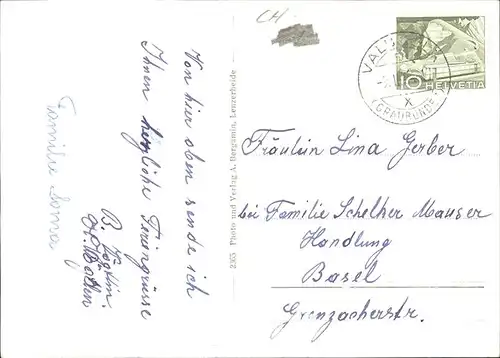 CH
Von hier oben sende ich
Ihnen herzliche Feriengrüsse
B.
Familie
2365 Photo und Verlag A. Bergamin, Lenzerheide
VAL
(GRAUBÜNDEN)
X
10 HELVETIA
Fräulein Lina Gerber
bei Familie Schelker Mauser
Handlung
Basel
Grenzacherstr.